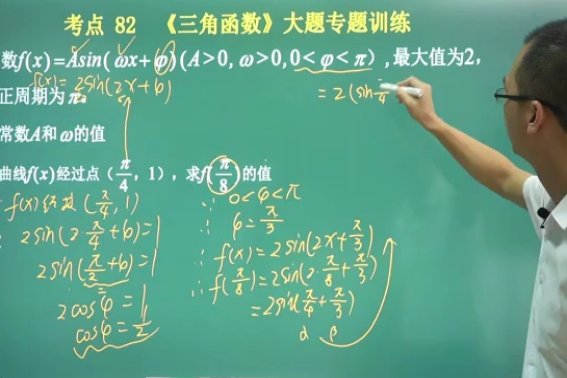 考点 82 《三角函数》大题专题训练
数f(x)=Asin(ωx+φ)(A>0, ω>0,0<φ<π),最大值为2,
正周期为π。
f(x)=2sin(2x+φ)
=2(sin π/4
常数A和ω的值
曲线f(x)经过点(π/4, 1),求f(π/8)的值
f(x)经过(π/4,1)
2sin(2·π/4+φ)=1
2sin(π/2+φ)=1
2cosφ=1
cosφ=1/2
∵0<φ<π
φ=π/3
∴f(x)=2sin(2x+π/3)
∴f(π/8)=2sin(2·π/8+π/3)
=2sin(π/4+π/3)
α β